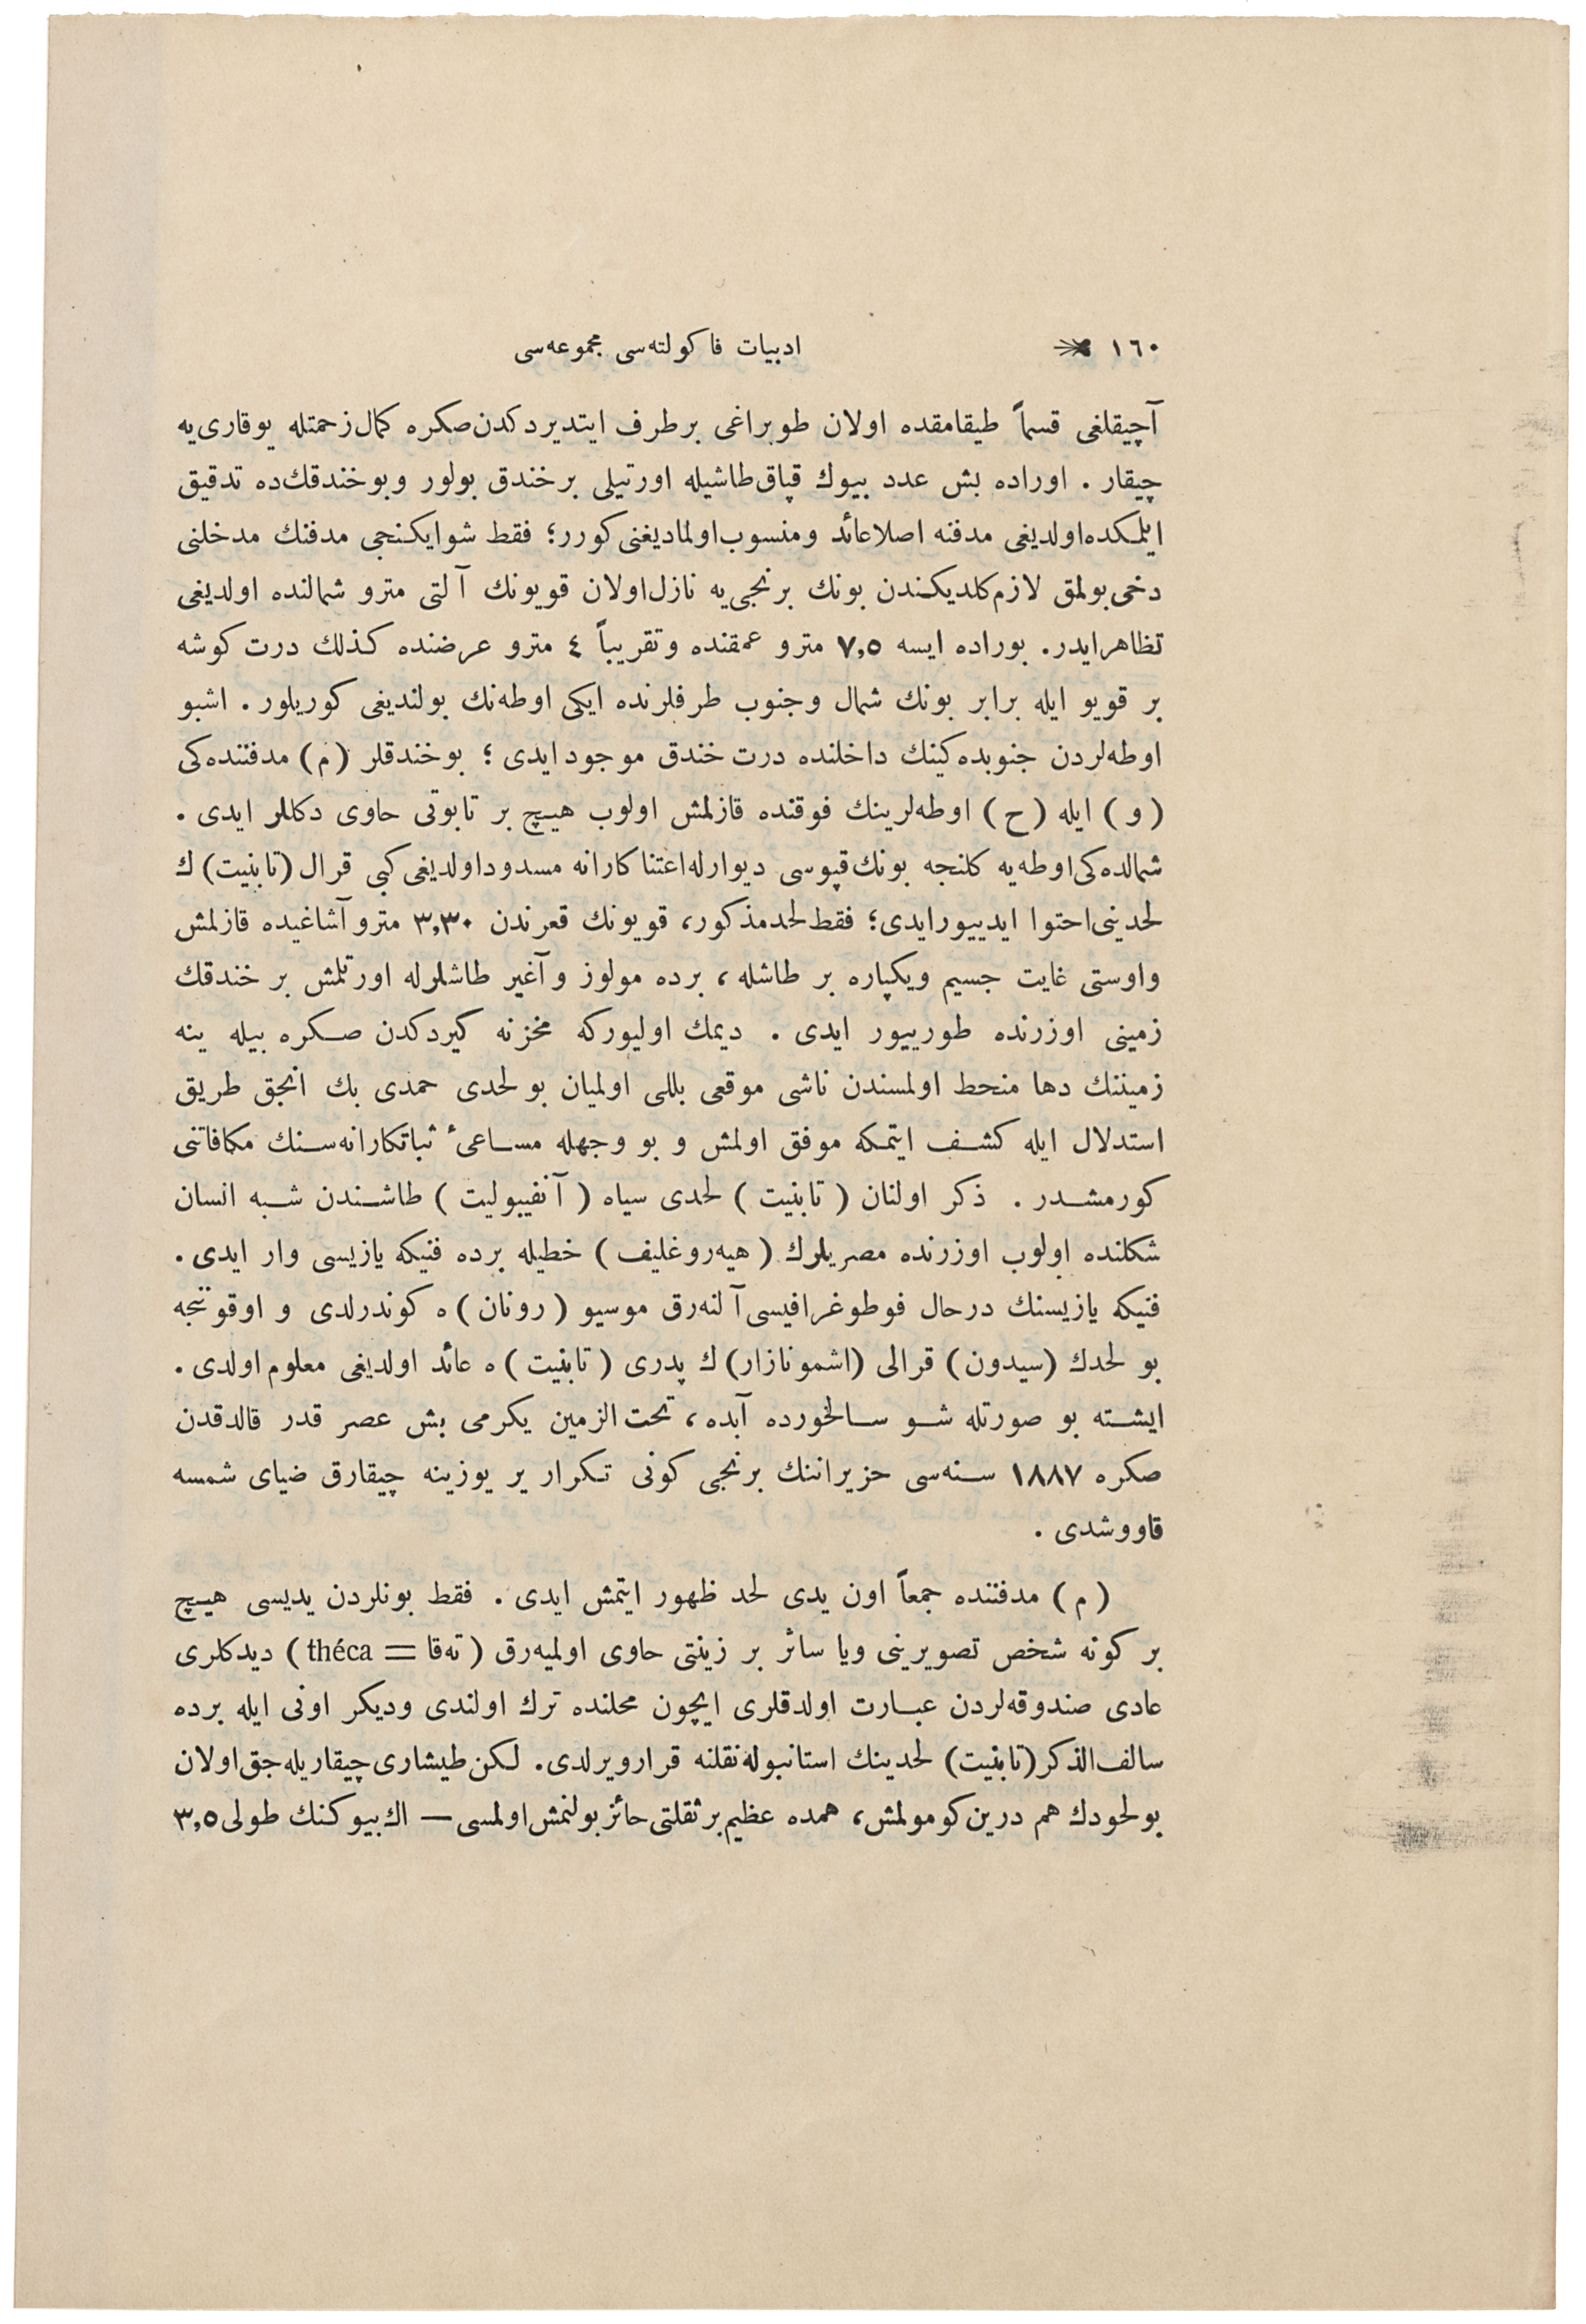 ١٦٠ ادبيات فاكولته‌سى مجموعه‌سى
آچيقلغى قسماً طيقامقده اولان طوبراغى برطرف ايتديردكدن صكره كمال زحمتله يوقارى‌يه
چيقار . اوراده بش عدد بيوك قپاق طاشيله اورتيلى برخندق بولور وبوخندقك‌ده تدقيق
ايلمكده‌اولديغى مدفنه اصلا عائد ومنسوب اولماديغنى كورر؛ فقط شوايكنجى مدفنك مدخلنى
دخى بولمق لازم كلديكندن بونك برنجى‌يه نازل اولان قويونك آلتى مترو شمالنده اولديغى
تظاهرايدر. بوراده ايسه ٧,٥ مترو عمقنده وتقريباً ٤ مترو عرضنده كذلك درت كوشه
بر قويو ايله برابر بونك شمال وجنوب طرفلرنده ايكى اوطه‌نك بولنديغى كوريلور . اشبو
اوطه‌لردن جنوبده‌كينك داخلنده درت خندق موجود ايدى ؛ بوخندقلر (م) مدفننده‌كى
(و) ايله (ح) اوطه‌لرينك فوقنده قازلمش اولوب هيچ بر تابوتى حاوى دكللر ايدى .
شمالده‌كى اوطه‌يه كلنجه بونك قپوسى ديوارله اعتناكارانه مسدود اولديغى كبى قرال (تابنيت) ك
لحدينى احتوا ايدييور ايدى؛ فقط لحد مذكور، قويونك قعرندن ٣,٣٠ مترو آشاغيده قازلمش
واوستى غايت جسيم ويكپاره بر طاشله ، برده مولوز و آغير طاشلرله اورتلمش بر خندقك
زمينى اوزرنده طورييور ايدى . ديمك اوليوركه مخزنه كيردكدن صكره بيله ينه
زميننك دها منحط اولمسندن ناشى موقعى بللى اولميان بو لحدى حمدى بك انجق طريق
استدلال ايله كشف ايتمكه موفق اولمش و بو وجهله مساعىٔ ثباتكارانه‌سنك مكافاتنى
كورمشدر . ذكر اولنان (تابنيت) لحدى سياه (آنفيبوليت) طاشندن شبه انسان
شكلنده اولوب اوزرنده مصريلرك (هيه‌روغليف) خطيله برده فنيكه يازيسى وار ايدى .
فنيكه يازيسنك درحال فوطوغرافيسى آلنه‌رق موسيو (رونان) ه كوندرلدى و اوقوننجه
بو لحدك (سيدون) قرالى (اشمونازار) ك پدرى (تابنيت) ه عائد اولديغى معلوم اولدى .
ايشته بو صورتله شو سالخورده آبده ، تحت الزمين يكرمى بش عصر قدر قالدقدن
صكره ١٨٨٧ سنه‌سى حزيراننك برنجى كونى تكرار ير يوزينه چيقارق ضياى شمسه
قاووشدى .
(م) مدفننده جمعاً اون يدى لحد ظهور ايتمش ايدى . فقط بونلردن يديسى هيچ
بر كونه شخص تصويرينى ويا سائر بر زينتى حاوى اولميه‌رق (ته‌قا = théca) ديدكلرى
عادى صندوقه‌لردن عبارت اولدقلرى ايچون محلنده ترك اولندى وديكر اونى ايله برده
سالف الذكر (تابنيت) لحدينك استانبوله نقلنه قرار ويرلدى. لكن طيشارى چيقاريله‌جق اولان
بولحودك هم درين كومولمش، همده عظيم بر ثقلتى حائز بولنمش اولمسى — اك بيوكنك طولى ٣,٥